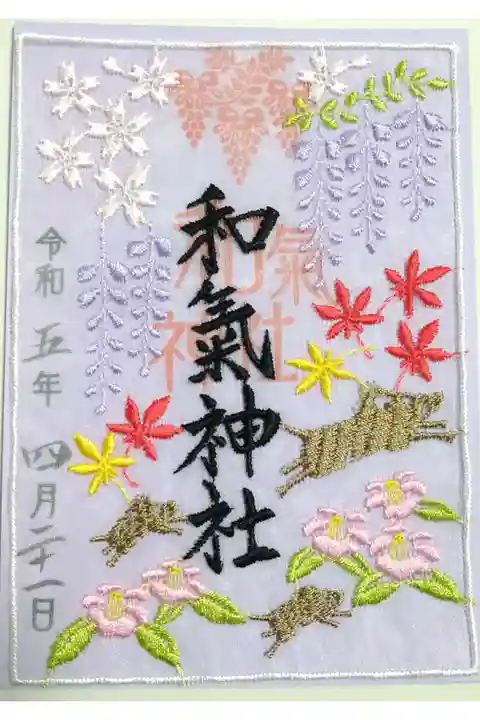 和氣神社
和氣
神社
令和五年 四月二十一日